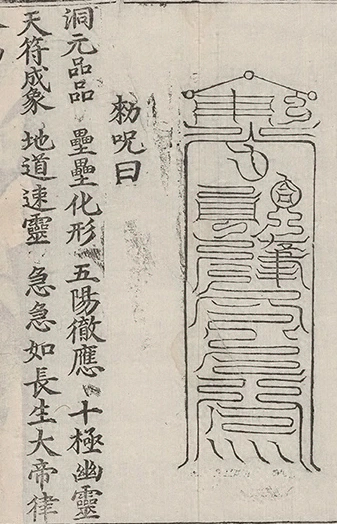 勑呪曰
洞元品品 壘壘化形 五陽徹應 十極幽靈
天符成象 地道速靈 急急如長生大帝律